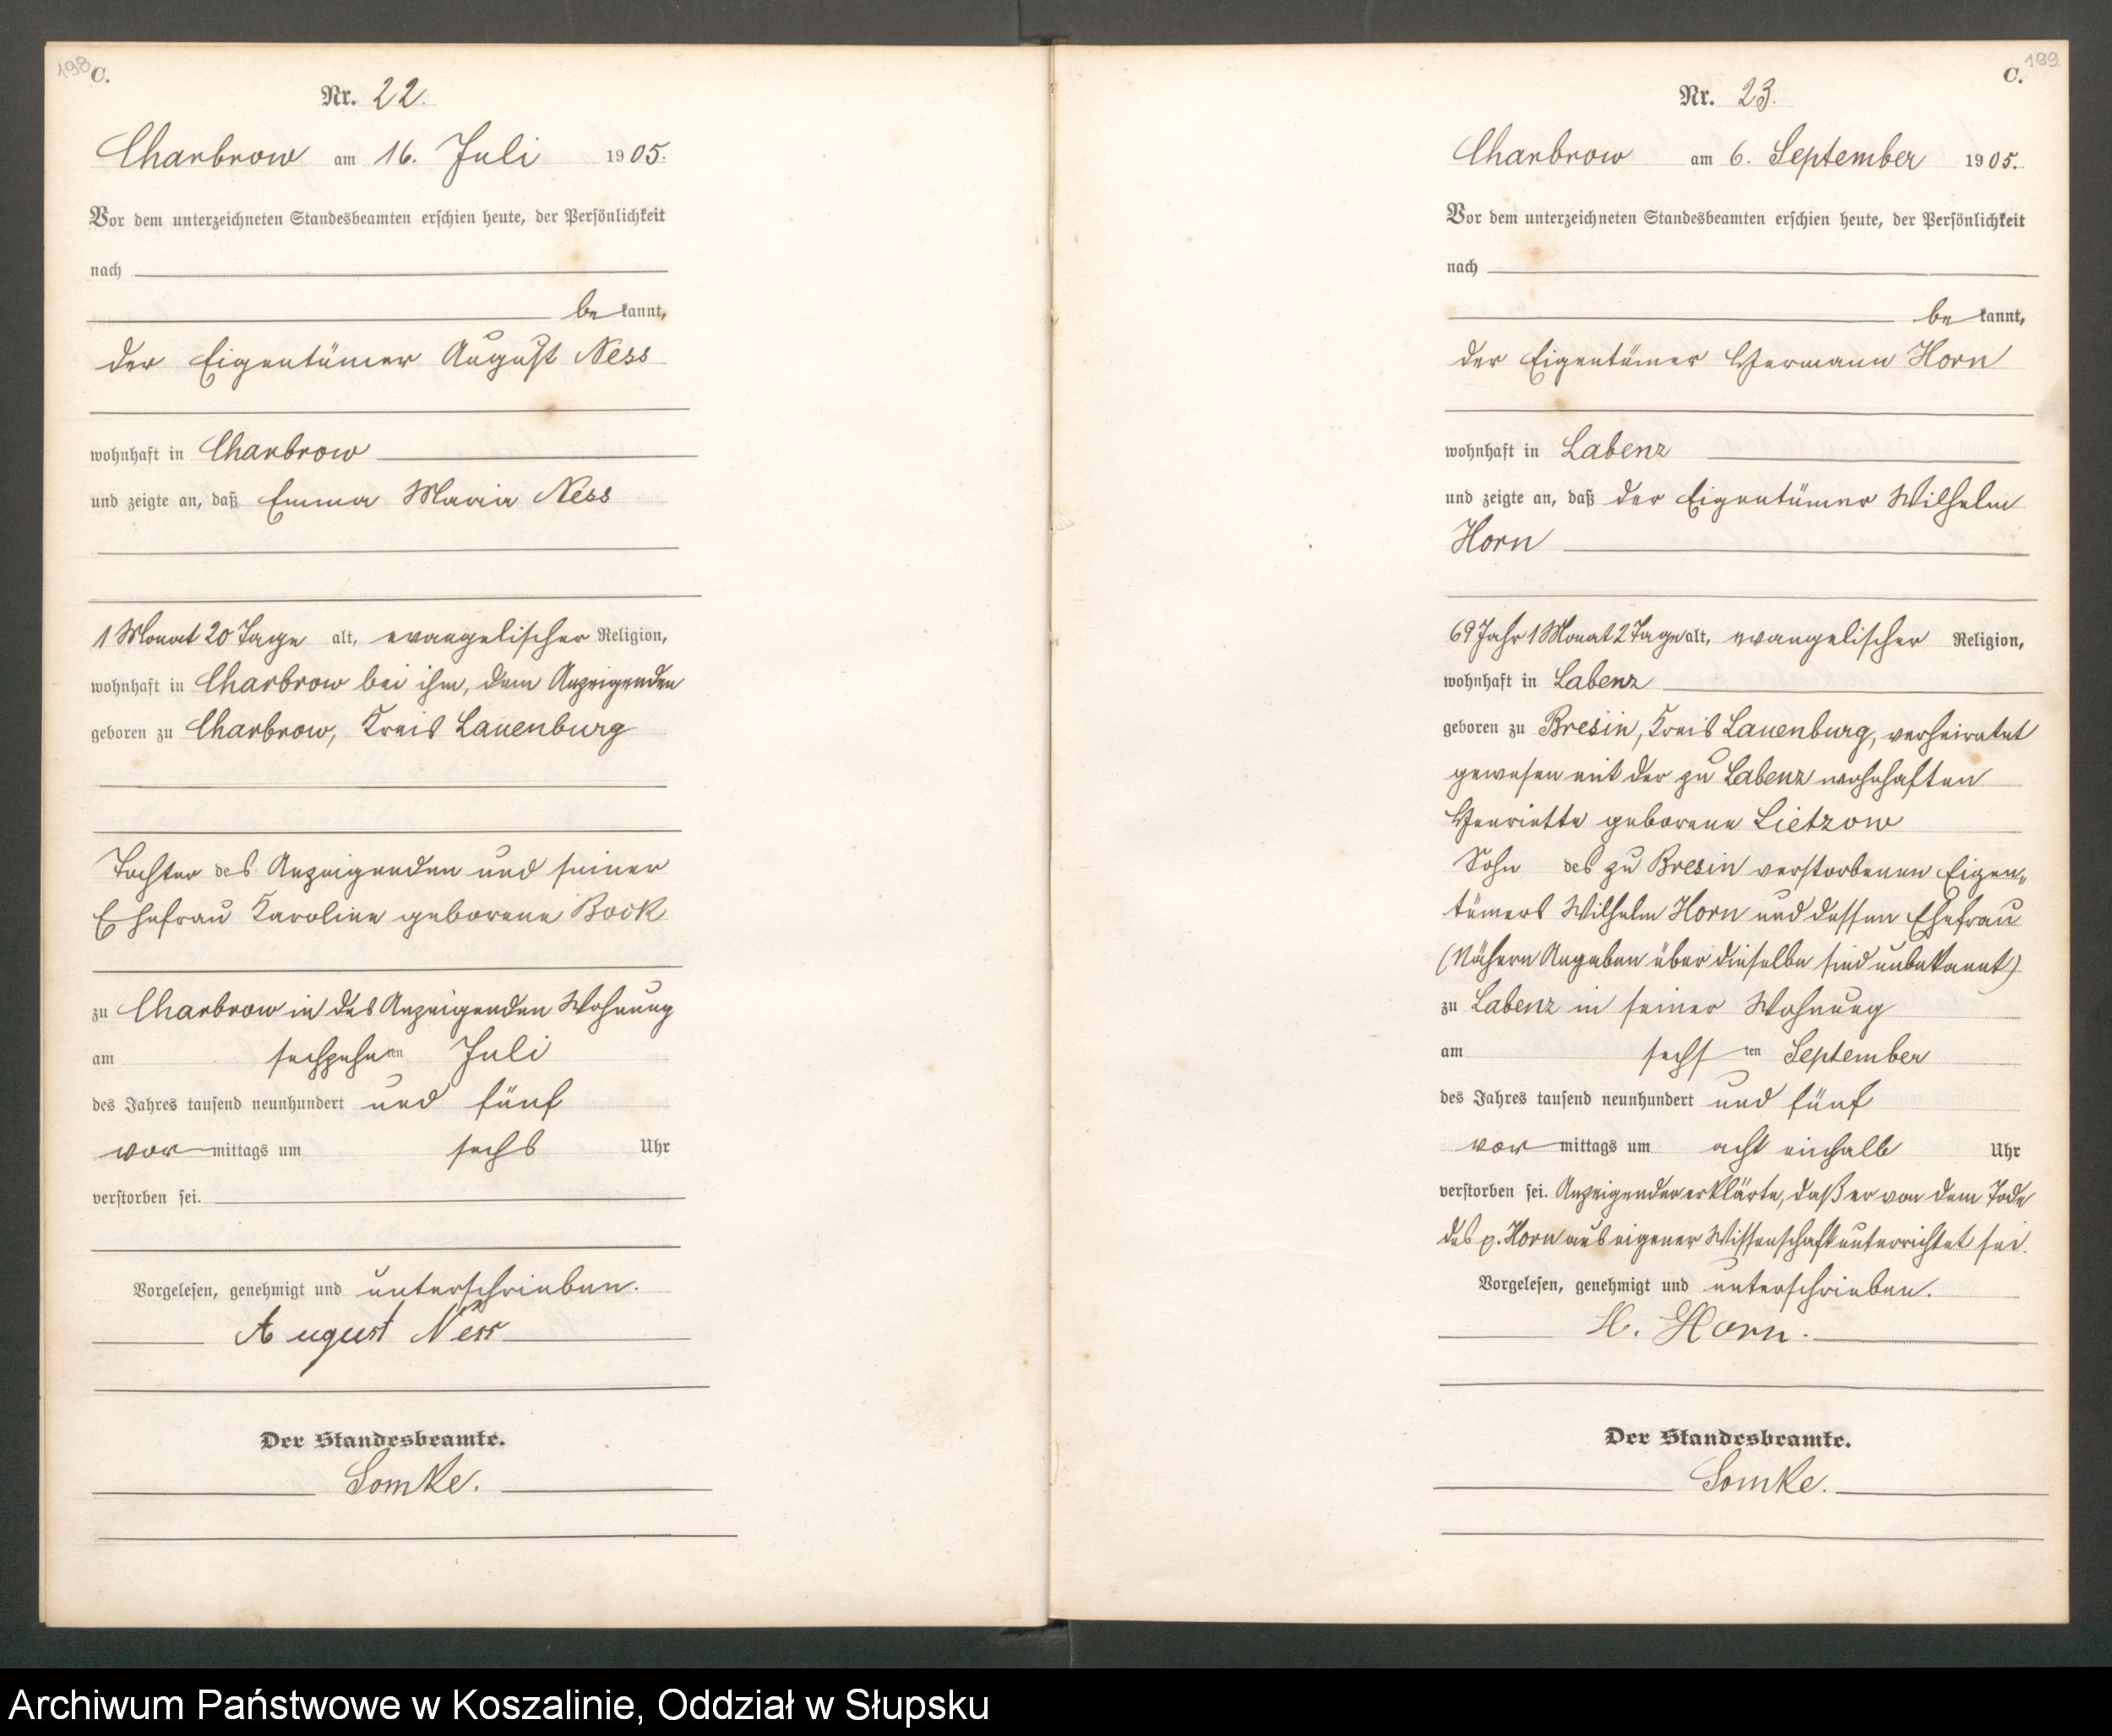 198 C.
Nr. 22.
Charbrow am 16. Juli 1905.
Vor dem unterzeichneten Standesbeamten erschien heute, der Persönlichkeit
nach
be kannt,
der Eigentümer August Ness
wohnhaft in Charbrow
und zeigte an, daß Emma Maria Ness
1 Monat 20 Tage alt, evangelischer Religion,
wohnhaft in Charbrow bei ihm, dem Anzeigenden
geboren zu Charbrow, Kreis Lauenburg
Tochter des Anzeigenden und seiner
Ehefrau Karoline geborene Bock
zu Charbrow in des Anzeigenden Wohnung
am sechzehnten Juli
des Jahres tausend neunhundert und fünf
vor mittags um sechs Uhr
verstorben sei.
Vorgelesen, genehmigt und unterschrieben.
August Ness
Der Standesbeamte.
Somke.
199
C.
Nr. 23.
Charbrow am 6. September 1905.
Vor dem unterzeichneten Standesbeamten erschien heute, der Persönlichkeit
nach
be kannt,
der Eigentümer Hermann Horn
wohnhaft in Labenz
und zeigte an, daß der Eigentümer Wilhelm
Horn
69 Jahr 1 Monat 2 Tage alt, evangelischer Religion,
wohnhaft in Labenz
geboren zu Bresin, Kreis Lauenburg, verheiratet
gewesen mit der zu Labenz wohnhaften
Henriette geborene Lietzow
Sohn des zu Bresin verstorbenen Eigen„
tümers Wilhelm Horn und dessen Ehefrau
(Nähern Angaben über dieselbe sind unbekannt)
zu Labenz in seiner Wohnung
am sechs ten September
des Jahres tausend neunhundert und fünf
vor mittags um acht einhalb Uhr
verstorben sei. Anzeigender erklärte, daß er von dem Tode
des p. Horn aus eigener Wissenschaft unterrichtet sei.
Vorgelesen, genehmigt und unterschrieben.
H. Horn.
Der Standesbeamte.
Somke.
Archiwum Państwowe w Koszalinie, Oddział w Słupsku